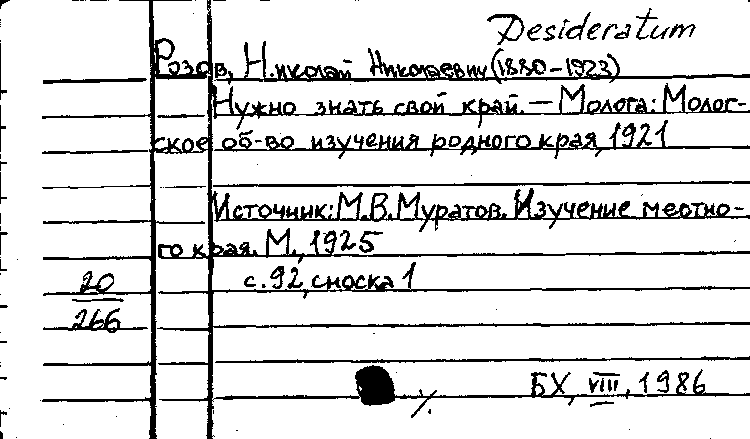 Desideratum
Розов, Николай Николаевич (1880-1923)
Нужно знать свой край. — Молога: Молог-
ское об-во изучения родного края, 1921
Источник: М.В. Муратов. Изучение местно-
го края. М., 1925
20 с. 92, сноска 1
266
БХ, VIII, 1986